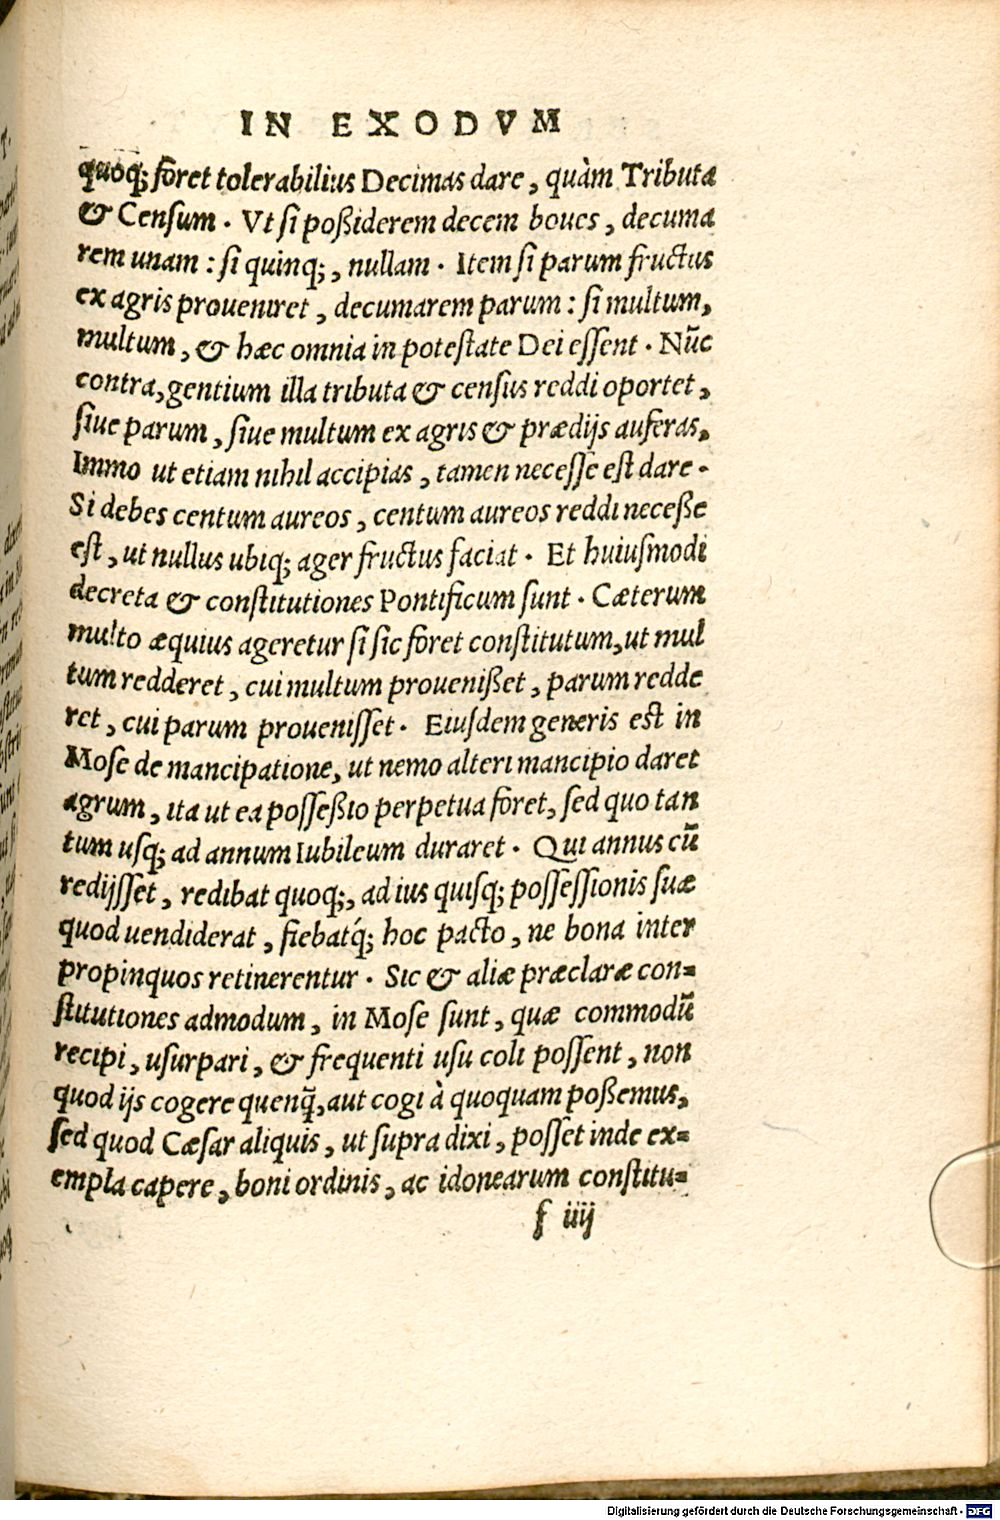 IN EXODVM
quoq; foret tolerabilius Decimas dare, quàm Tributa
& Censum. Vt si poßiderem decem boues, decuma
rem unam: si quinq;, nullam. Item si parum fructus
ex agris proueniret, decumarem parum: si multum,
multum, & hæc omnia in potestate Dei essent. Nūc
contra, gentium illa tributa & census reddi oportet,
siue parum, siue multum ex agris & prædijs auferas.
Immo ut etiam nihil accipias, tamen necesse est dare.
Si debes centum aureos, centum aureos reddi neceße
est, ut nullus ubiq; ager fructus faciat. Et huiusmodi
decreta & constitutiones Pontificum sunt. Cæterum
multo æquius ageretur si sic foret constitutum, ut mul
tum redderet, cui multum proueniẞet, parum redde
ret, cui parum prouenisset. Eiusdem generis est in
Mose de mancipatione, ut nemo alteri mancipio daret
agrum, ita ut ea posseßio perpetua foret, sed quo tan
tum usq; ad annum Iubileum duraret. Qui annus cū
redijsset, redibat quoq;, ad ius quisq; possessionis suæ
quod uendiderat, fiebatq́; hoc pacto, ne bona inter
propinquos retinerentur. Sic & aliæ præclaræ con=
stitutiones admodum, in Mose sunt, quæ commodū
recipi, usurpari, & frequenti usu coli possent, non
quod ijs cogere quenq̃, aut cogi à quoquam poßemus,
sed quod Cæsar aliquis, ut supra dixi, posset inde ex=
empla capere, boni ordinis, ac idonearum constitu=
f iiij
Digitalisierung gefördert durch die Deutsche Forschungsgemeinschaft - DFG